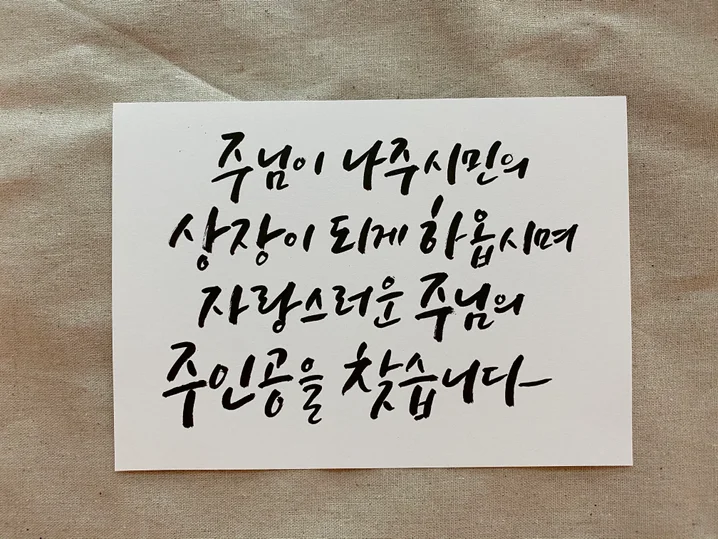 주님이 나주시민의
상장이 되게 하옵시며
자랑스러운 주님의
주인공을 찾습니다